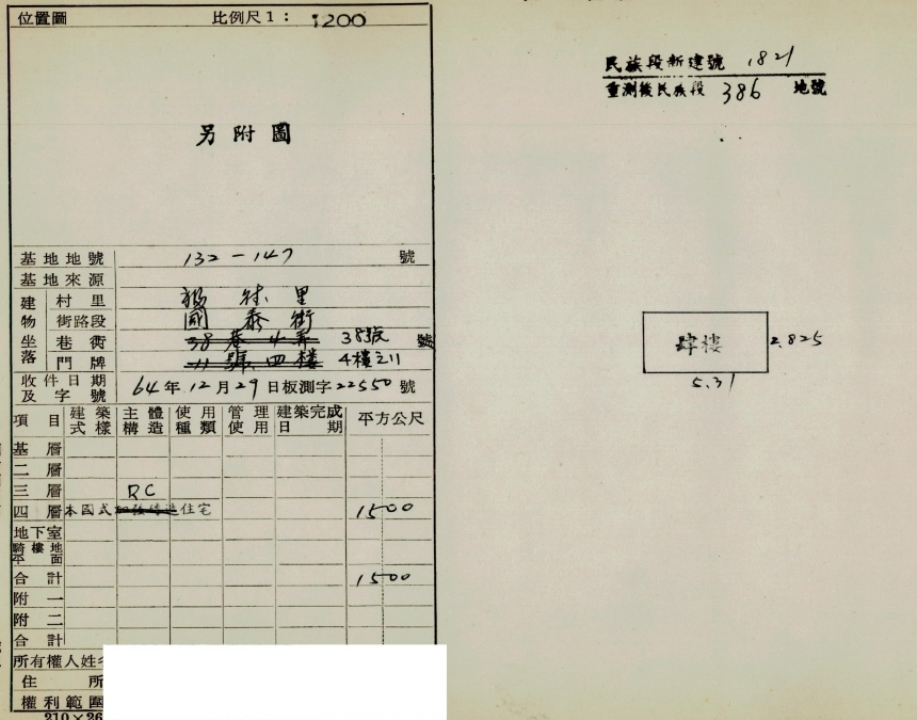 位置圖 比例尺1: 1200
另附圖
基地地號 132-147 號
基地來源
建物坐落 村里 里
街路段 國泰街
巷街 38巷4弄 38號 號
門牌 11號四樓 4樓之11
收件日期及字號 64年12月29日板測字22550號
項目 建築式樣 主體構造 使用種類 管理使用 建築完成日期 平方公尺
基層
二層
三層 RC
四層 本國式 住宅 1500
地下室
騎樓地平面
合計 1500
附一
附二
合計
所有權人姓
住所
權利範圍
210×26
民族段新建號 1821
重測後民族段 386 地號
肆樓 2.825
5.31